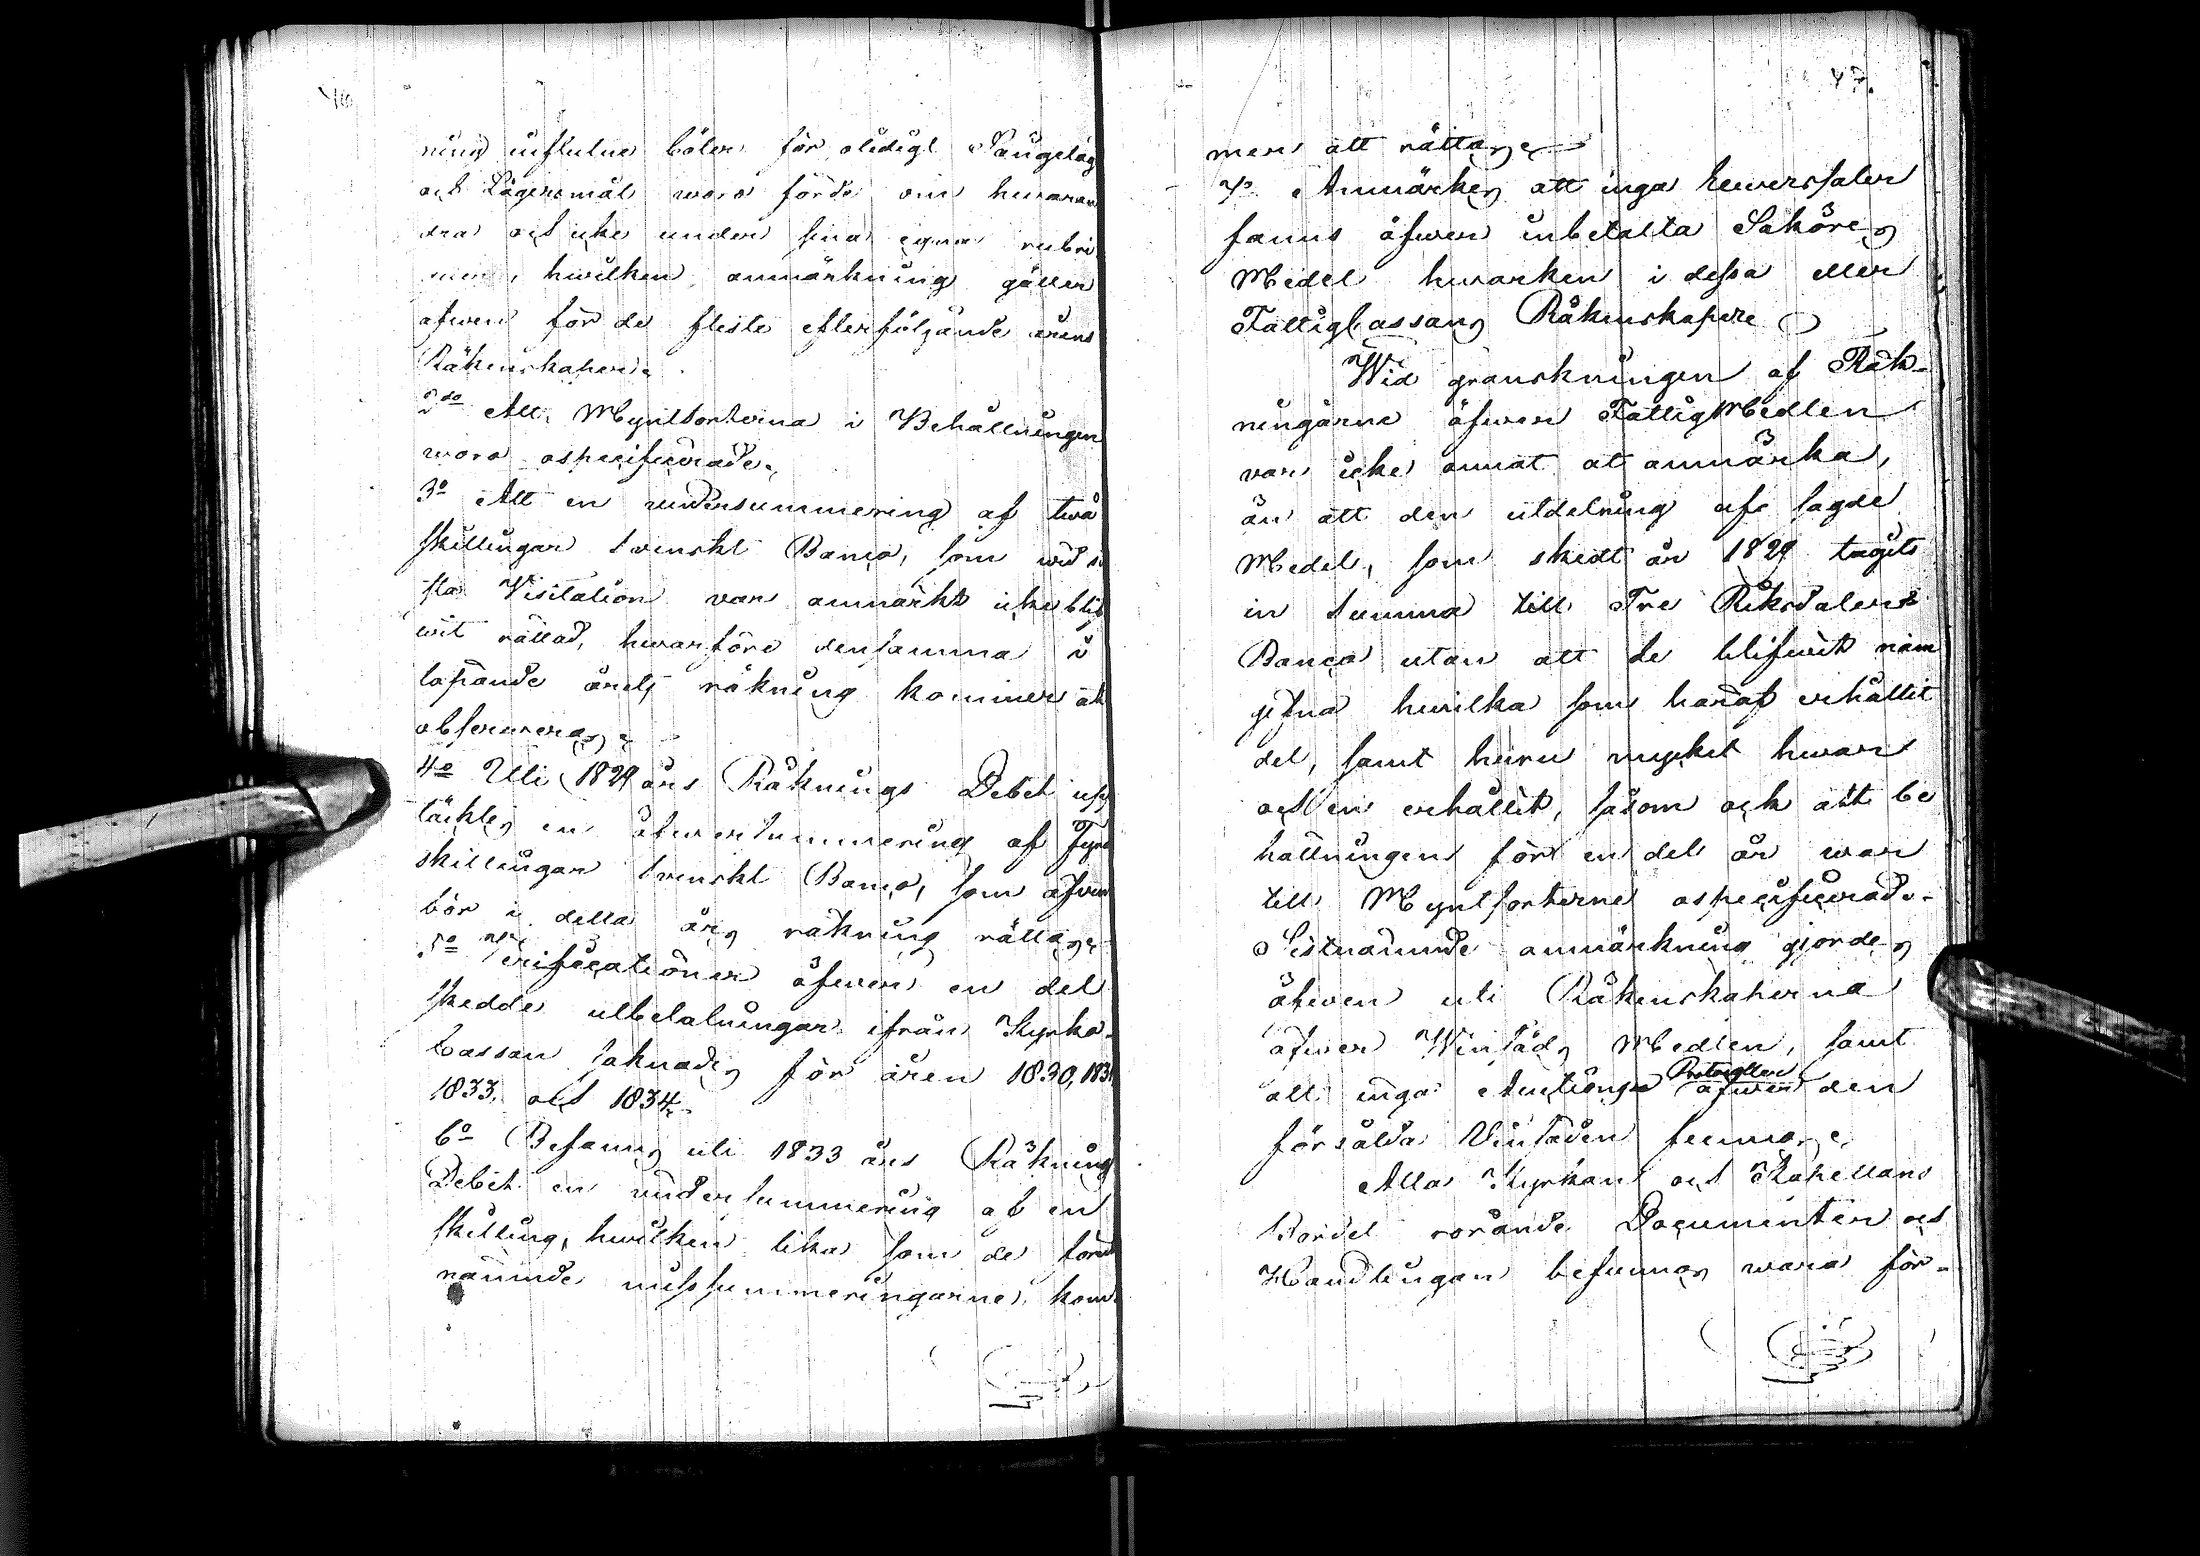 46
ning influtne böter för olidigt Sängelag
och Lägersmål woro förde om hwaran
dra och icke under sina egna rubri
hwilken anmärkning gäller
äfwen för de fleste efterföljande årens
Räkenskaper.
2do Att Myntsorterna i Behållningen
woro ospecificerade.
3o Att en undersummering af twå
skillingar Swenskt Banco, som wid si
sta Visitation var anmärkt icke blif
wit rättad, hwarföre densamma i
löpande årets räkning kommer at
observeras.
4o Uti 1829 års Räknings Debet upp
täcktes en öfwersummering af Fyra
skillingar Swenskt Banco, som äfwen
bör i detta års räkning rättas.
5o Verificationer öfwer en del
skedde utbetalningar ifrån Kyrko-
Cassan saknades för åren 1830, 1831
1833, och 1834.
6o Befanns uti 1833 års Räkning
Debet en undersummering af en
skilling, hwilken lika som de förut
nämnde missummeringarne, kom
47.
mer att rättas.
7o Anmärkes att inga Reverssaler
fanns öfwer inbetalta Saköres
Medel hwarken i dessa eller
Fattigcassans Räkenskaper
Wid granskningen af Räk-
ningarne öfwer FattigMedlen
var icke annat at anmärka,
än att den utdelning af sagde
Medel, som skedt år 1829 tagits
in summa till Tre Riksdaler
Banco utan att de blifwit näm
gifna hwilka som haraf erhållit
del, samt huru mycket hwar
och en erhållit, såsom ock att be
hållningen för en del år war
till Myntsorterne ospecificerade.
Sistnämnde anmärkning gjordes
äfwen uti Räkenskaperna
öfwer Winsäds Medlen, samt
att inga Auctions Protocoller öfwer den
försålda Vinsäden funnos.
Alla Kyrkan och Kapellans
Bordel rörande Documenter och
Handlingar befunnos wara för-